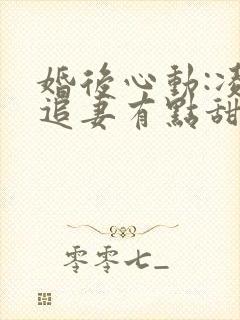 婚後心動:凌
追妻有點甜
零零七_